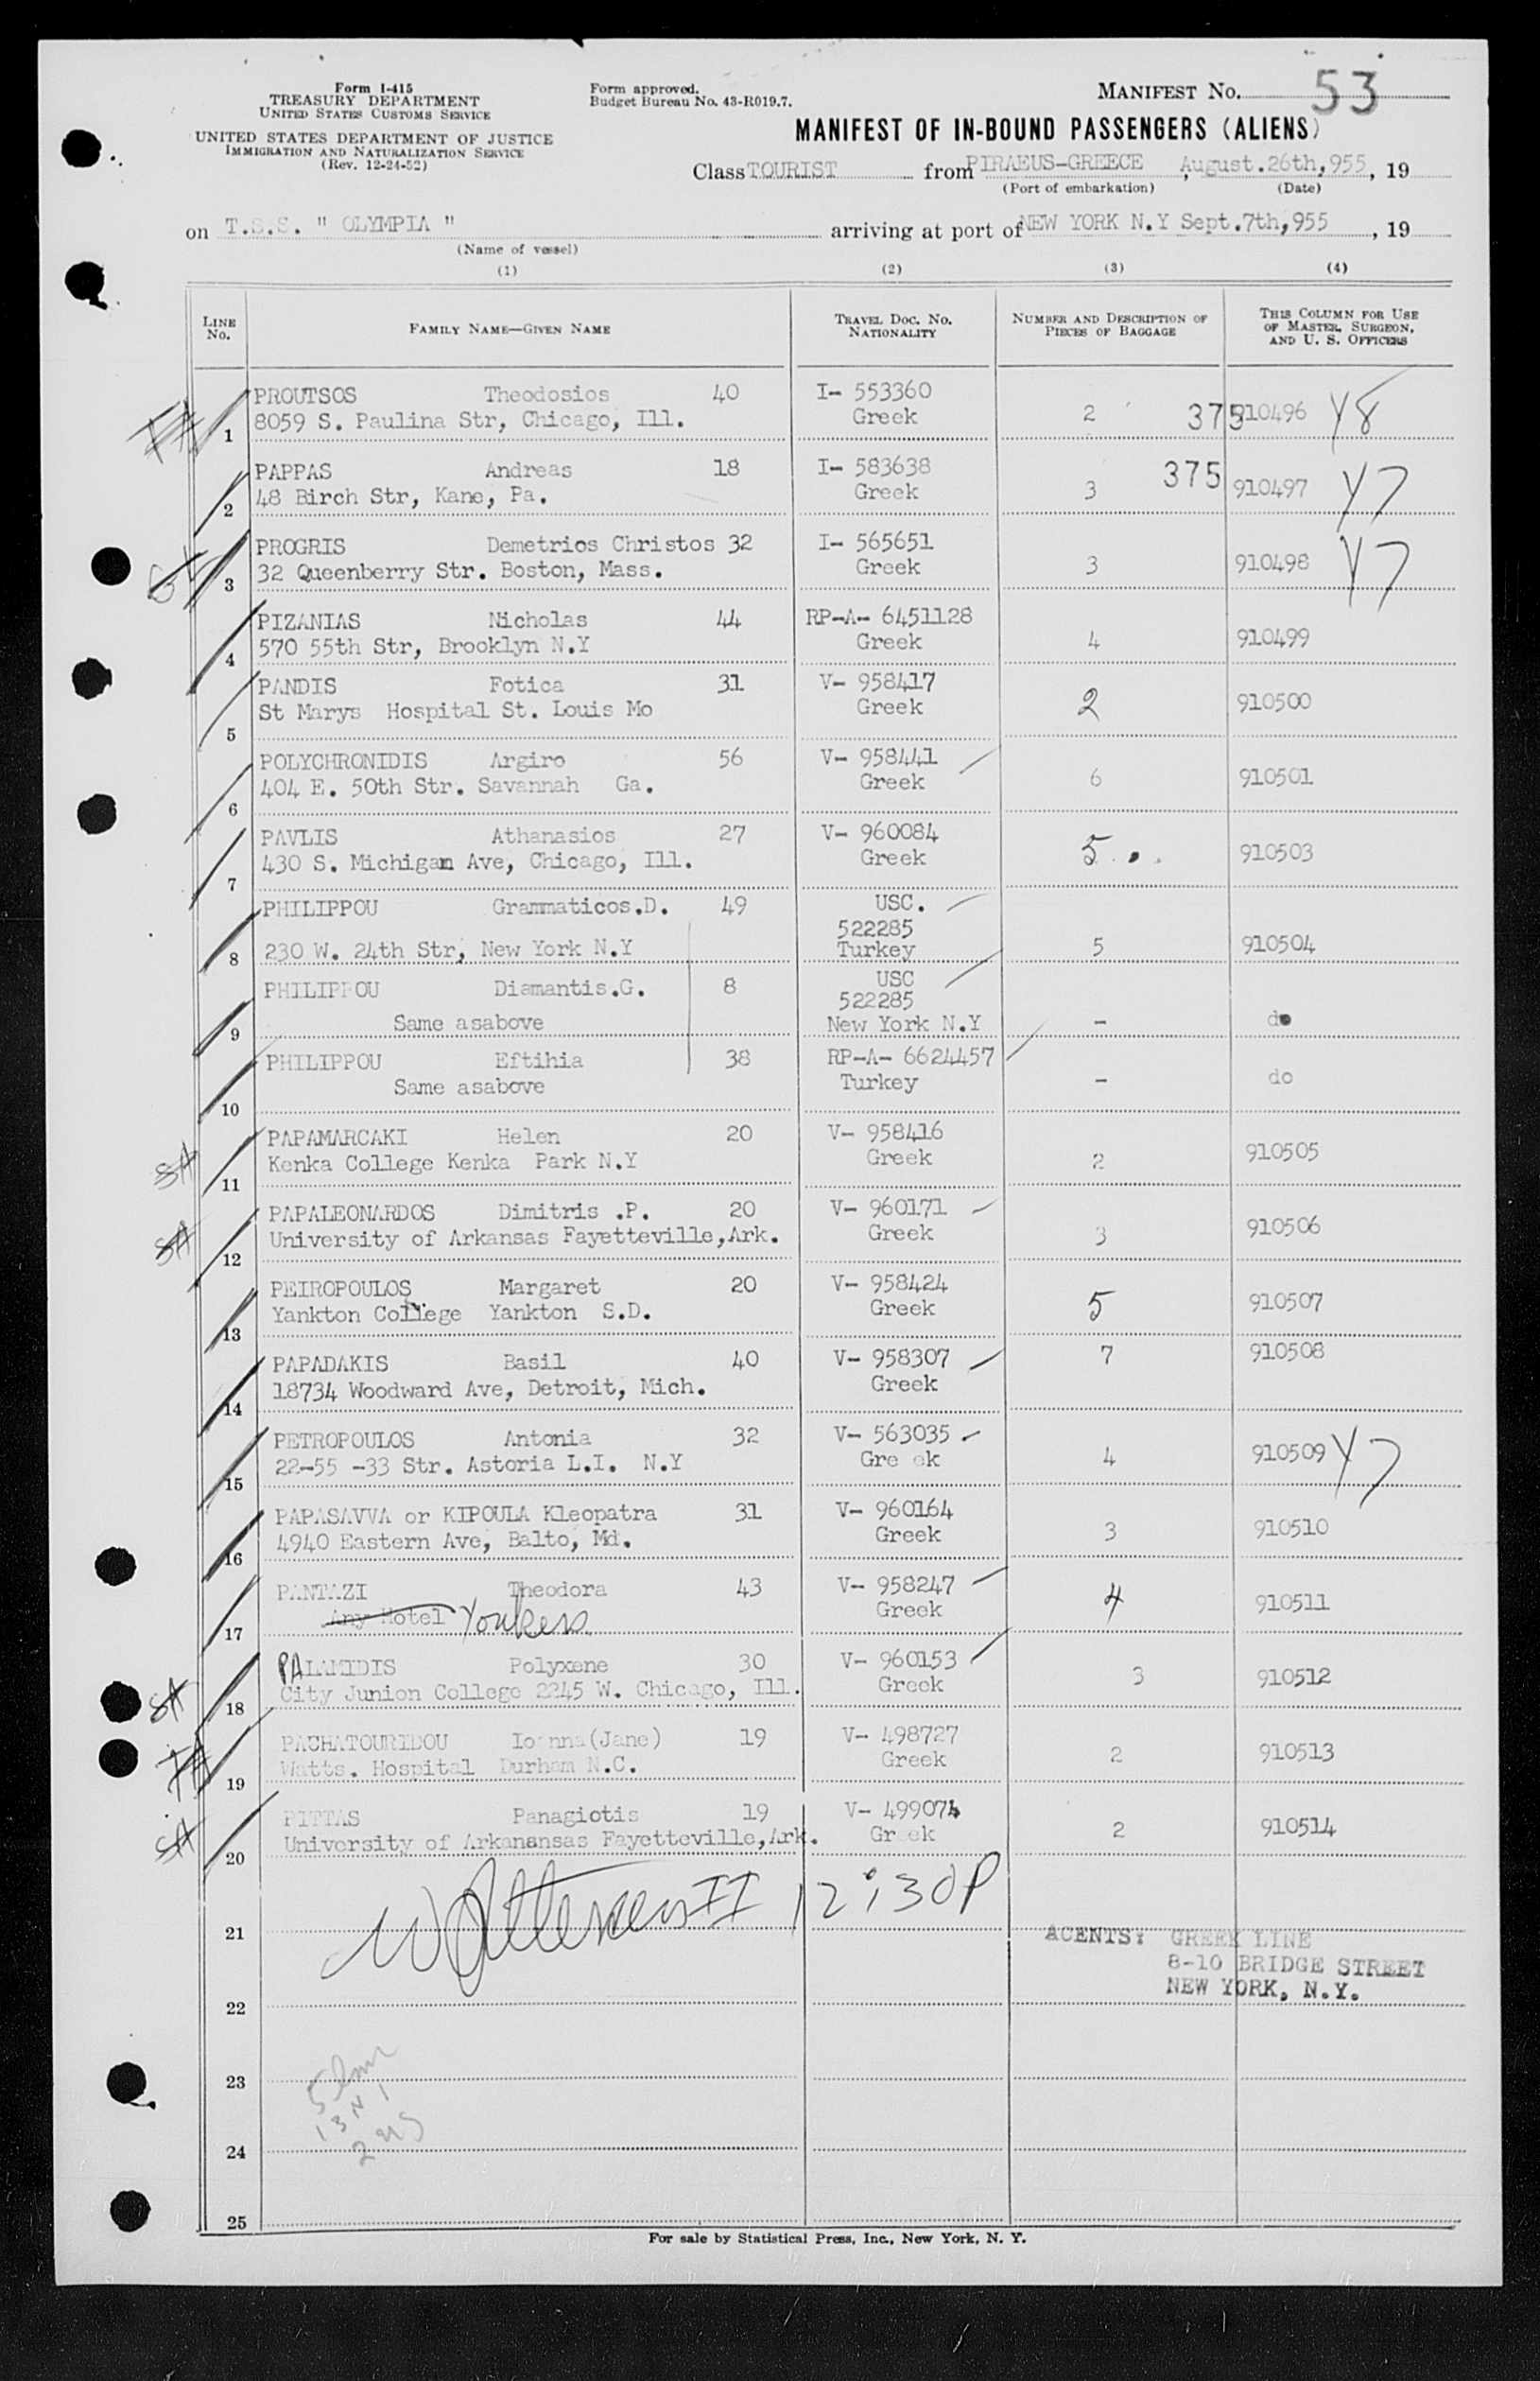 Form I-415
TREASURY DEPARTMENT
UNITED STATES CUSTOMS SERVICE
UNITED STATES DEPARTMENT OF JUSTICE
IMMIGRATION AND NATURALIZATION SERVICE
(Rev. 12-24-52)
Form approved.
Budget Bureau No. 43-R019.7.
MANIFEST NO. 53
MANIFEST OF IN-BOUND PASSENGERS (ALIENS)
Class TOURIST from PIRAEUS-GREECE, August.26th,955, 19
(Port of embarkation) (Date)
on T.S.S. " OLYMPIA " arriving at port of NEW YORK N.Y Sept.7th,955, 19
(Name of vessel)
(1) (2) (3) (4)
LINE NO. FAMILY NAME—GIVEN NAME TRAVEL DOC. NO. NATIONALITY NUMBER AND DESCRIPTION OF PIECES OF BAGGAGE THIS COLUMN FOR USE OF MASTER, SURGEON, AND U. S. OFFICERS
PROUTSOS Theodosios 40 I- 553360
1 8059 S. Paulina Str, Chicago, Ill. Greek 2 375 910496 Y8
PAPPAS Andreas 18 I- 583638 375
2 48 Birch Str, Kane, Pa. Greek 3 910497 Y7
PROGRIS Demetrios Christos 32 I- 565651
3 32 Queenberry Str. Boston, Mass. Greek 3 910498 Y7
PIZANIAS Nicholas 44 RP-A- 6451128
4 570 55th Str, Brooklyn N.Y Greek 4 910499
PANDIS Fotica 31 V- 958417
5 St Marys Hospital St. Louis Mo Greek 2 910500
POLYCHRONIDIS Argiro 56 V- 958441
6 404 E. 50th Str. Savannah Ga. Greek 6 910501
PAVLIS Athanasios 27 V- 960084
7 430 S. Michigan Ave, Chicago, Ill. Greek 5 910503
PHILIPPOU Grammaticos.D. 49 USC.
522285
8 230 W. 24th Str, New York N.Y Turkey 5 910504
PHILIPPOU Diamantis.G. 8 USC
522285
9 Same asabove New York N.Y - do
PHILIPPOU Eftihia 38 RP-A- 6624457
10 Same asabove Turkey - do
PAPAMARCAKI Helen 20 V- 958416
11 Kenka College Kenka Park N.Y Greek 2 910505
PAPALEONARDOS Dimitris .P. 20 V- 960171
12 University of Arkansas Fayetteville,Ark. Greek 3 910506
PEIROPOULOS Margaret 20 V- 958424
13 Yankton College Yankton S.D. Greek 5 910507
PAPADAKIS Basil 40 V- 958307 7 910508
14 18734 Woodward Ave, Detroit, Mich. Greek
PETROPOULOS Antonia 32 V- 563035
15 22-55 -33 Str. Astoria L.I. N.Y Gre ek 4 910509 Y7
PAPASAVVA or KIPOULA Kleopatra 31 V- 960164
16 4940 Eastern Ave, Balto, Md. Greek 3 910510
PANTAZI Theodora 43 V- 958247
17 Any Hotel Yonkers Greek 4 910511
PALAMIDIS Polyxene 30 V- 960153
18 City Junion College 2245 W. Chicago, Ill. Greek 3 910512
PACHATOURIDOU Ioanna(Jane) 19 V- 498727
19 Watts. Hospital Durham N.C. Greek 2 910513
PITTAS Panagiotis 19 V- 499074
20 University of Arkanansas Fayetteville,Ark. Greek 2 910514
12:30P
21
AGENTS: GREEK LINE
8-10 BRIDGE STREET
NEW YORK, N.Y.
22
23
24
25
For sale by Statistical Press, Inc., New York, N. Y.